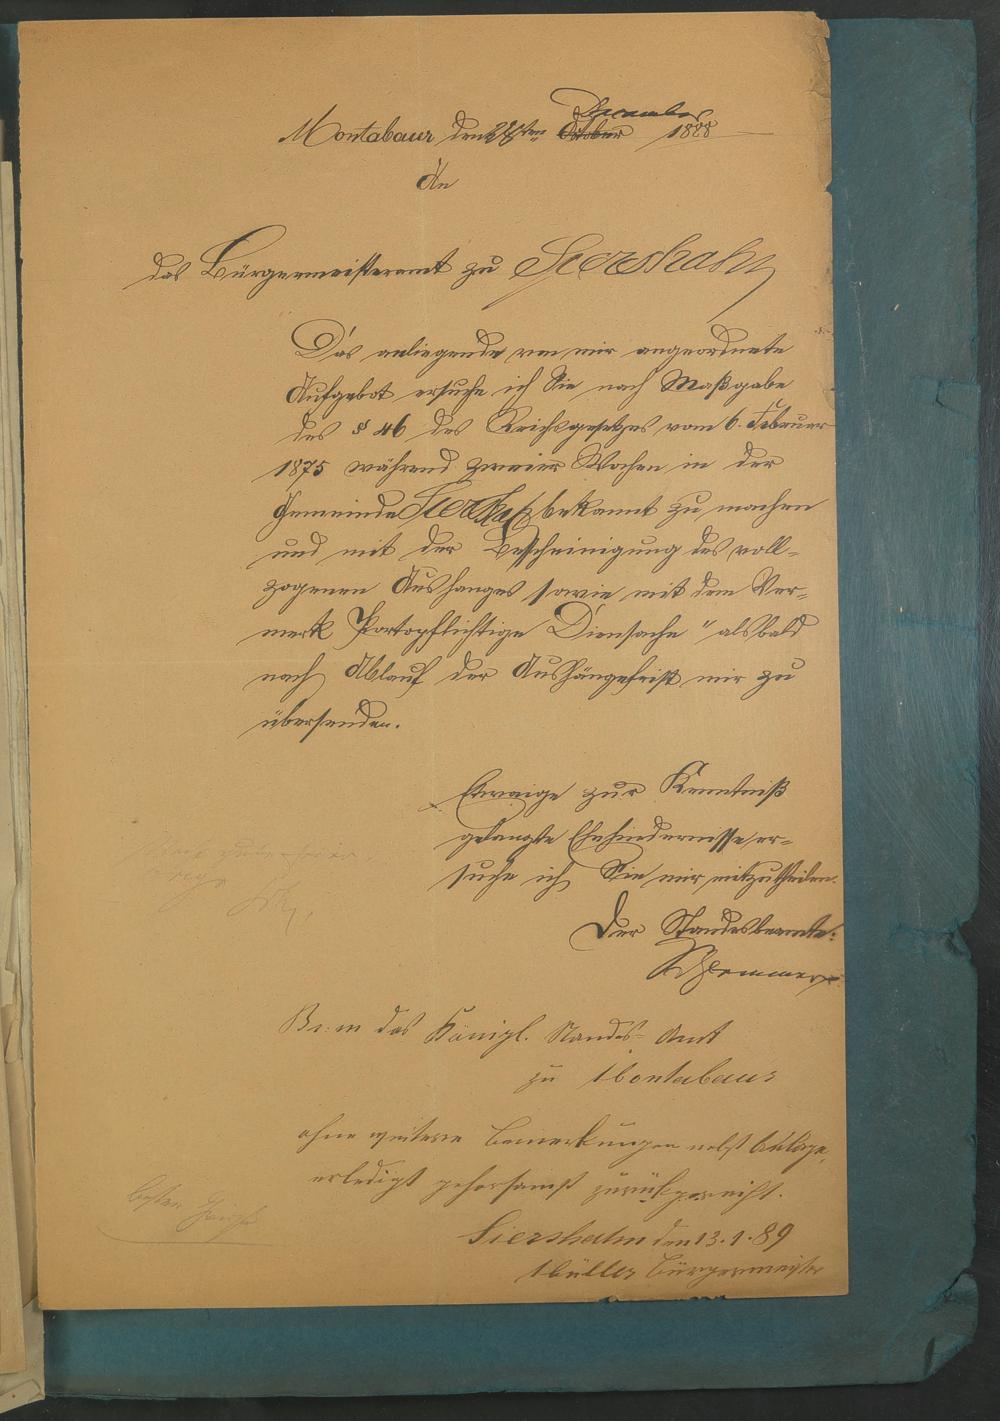 December
Montabaur den 28ten October 1888
An
das Bürgermeisteramt zu Siershahn
Das anliegende von mir angeordnete
Aufgebot ersuche ich Sie nach Maßgabe
des § 46 des Reichsgesetzes vom 6. Februar
1875 während zweier Wochen in der
Gemeinde Siershahn bekannt zu machen
und mit der Bescheinigung des voll-
zogenen Aushanges sowie mit dem Ver-
merk Portopflichtige Diensache" alsbald
nach Ablauf der Aushängefrist mir zu
übersenden.
Etwaige zur Kenntniß
gelangte Ehehindernisse er-
suche ich Sie mir mitzutheilen.
Der Standesbeamte:
Br. m das Königl. Standes-Amt
zu Montabaur
ohne weitere Bemerkungen nebst Anlage,
erledigt gehorsamst zurückgereicht.
Siershahn den 13.1.89
Müller Bürgermeister